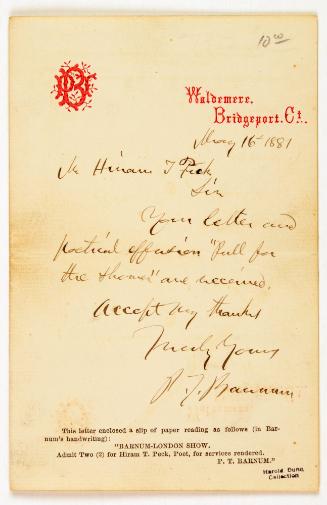 10 00
PB
Waldemere,
Bridgeport, Ct.
May 16 1881
Mr Hiram T Peck
Sir
Your letter and
poetical effusion "Pull for
the Shower" are received.
Accept my thanks
Truly Yours
P. T. Barnum
This letter enclosed a slip of paper reading as follows (in Bar-
num's handwriting):
"BARNUM-LONDON SHOW.
Admit Two (2) for Hiram T. Peck, Poet, for services rendered.
P. T. BARNUM."
Harold Dunn
Collection